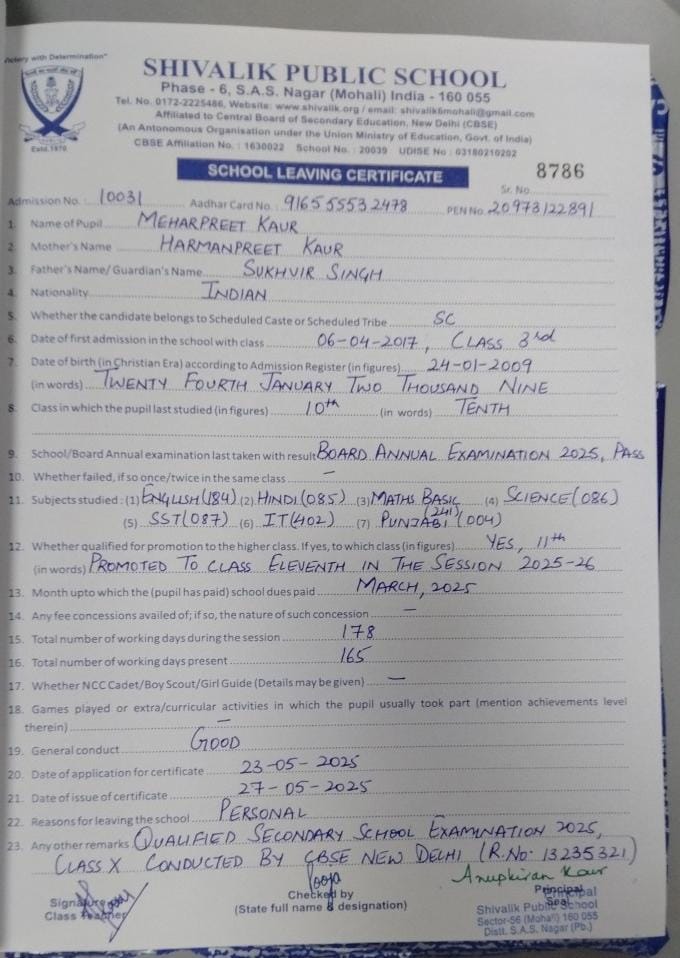 Victory with Determination"
Estd.1970
SHIVALIK PUBLIC SCHOOL
Phase - 6, S.A.S. Nagar (Mohali) India - 160 055
Tel. No. 0172-2225486, Website: www.shivalik.org / email: shivalik6mohali@gmail.com
Affiliated to Central Board of Secondary Education, New Delhi (CBSE)
(An Antonomous Organisation under the Union Ministry of Education, Govt. of India)
CBSE Affiliation No. : 1630022 School No. : 20039 UDISE No : 03180210202
SCHOOL LEAVING CERTIFICATE
Sr. No. 8786
Admission No. 10031 Aadhar Card No. 916555532478 PEN No. 20973122891
1. Name of Pupil MEHARPREET KAUR
2. Mother's Name HARMANPREET KAUR
3. Father's Name/ Guardian's Name SUKHVIR SINGH
4. Nationality INDIAN
5. Whether the candidate belongs to Scheduled Caste or Scheduled Tribe SC
6. Date of first admission in the school with class 06-04-2017, CLASS 3rd
7. Date of birth (in Christian Era) according to Admission Register (in figures) 24-01-2009
(in words) TWENTY FOURTH JANUARY TWO THOUSAND NINE
8. Class in which the pupil last studied (in figures) 10th (in words) TENTH
9. School/Board Annual examination last taken with result BOARD ANNUAL EXAMINATION 2025, PASS
10. Whether failed, if so once/twice in the same class –
11. Subjects studied : (1) ENGLISH(184) (2) HINDI(085) (3) MATHS BASIC (241) (4) SCIENCE(086)
(5) SST(087) (6) IT(402) (7) PUNJABI (004)
12. Whether qualified for promotion to the higher class. If yes, to which class (in figures) YES, 11th
(in words) PROMOTED TO CLASS ELEVENTH IN THE SESSION 2025-26
13. Month upto which the (pupil has paid) school dues paid MARCH, 2025
14. Any fee concessions availed of; if so, the nature of such concession –
15. Total number of working days during the session 178
16. Total number of working days present 165
17. Whether NCC Cadet/Boy Scout/Girl Guide (Details may be given) –
18. Games played or extra/curricular activities in which the pupil usually took part (mention achievements level
therein) –
19. General conduct GOOD
20. Date of application for certificate 23-05-2025
21. Date of issue of certificate 27-05-2025
22. Reasons for leaving the school PERSONAL
23. Any other remarks QUALIFIED SECONDARY SCHOOL EXAMINATION 2025,
CLASS X CONDUCTED BY CBSE NEW DELHI (R.No. 13235321)
Pooja
Anupkiran Kaur
Signature
Class Teacher
Checked by
(State full name & designation)
Principal
Seal
Principal
Shivalik Public School
Sector-56 (Mohali) 160 055
Distt. S.A.S. Nagar (Pb.)